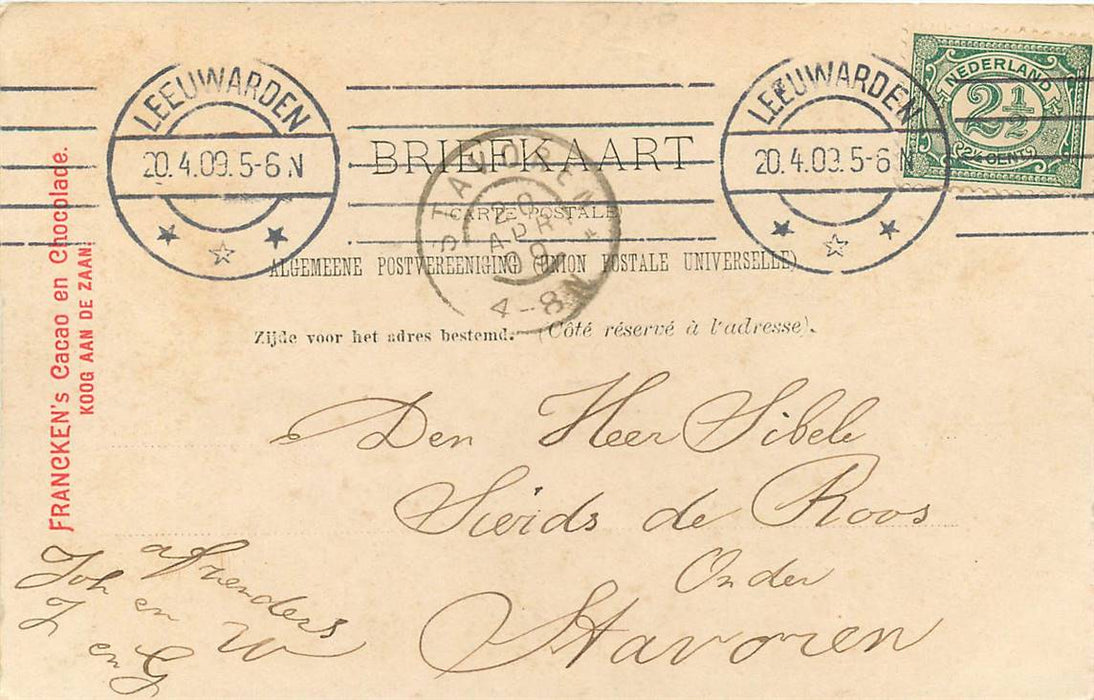 LEEUWARDEN
20.4.09.5-6 N
LEEUWARDEN
20.4.09.5-6 N
NEDERLAND
2½
CENT
BRIEFKAART
CARTE POSTALE
STAVOREN
20
APR
09
4-8N
ALGEMEENE POSTVEREENIGING (UNION POSTALE UNIVERSELLE)
Zijde voor het adres bestemd. (Côté réservé à l'adresse).
FRANCKEN's Cacao en Chocolade.
KOOG AAN DE ZAAN.
Den Heer Sibele
Sierds de Roos
Onder
Stavoren
afzenders
Joh en W
Z en G